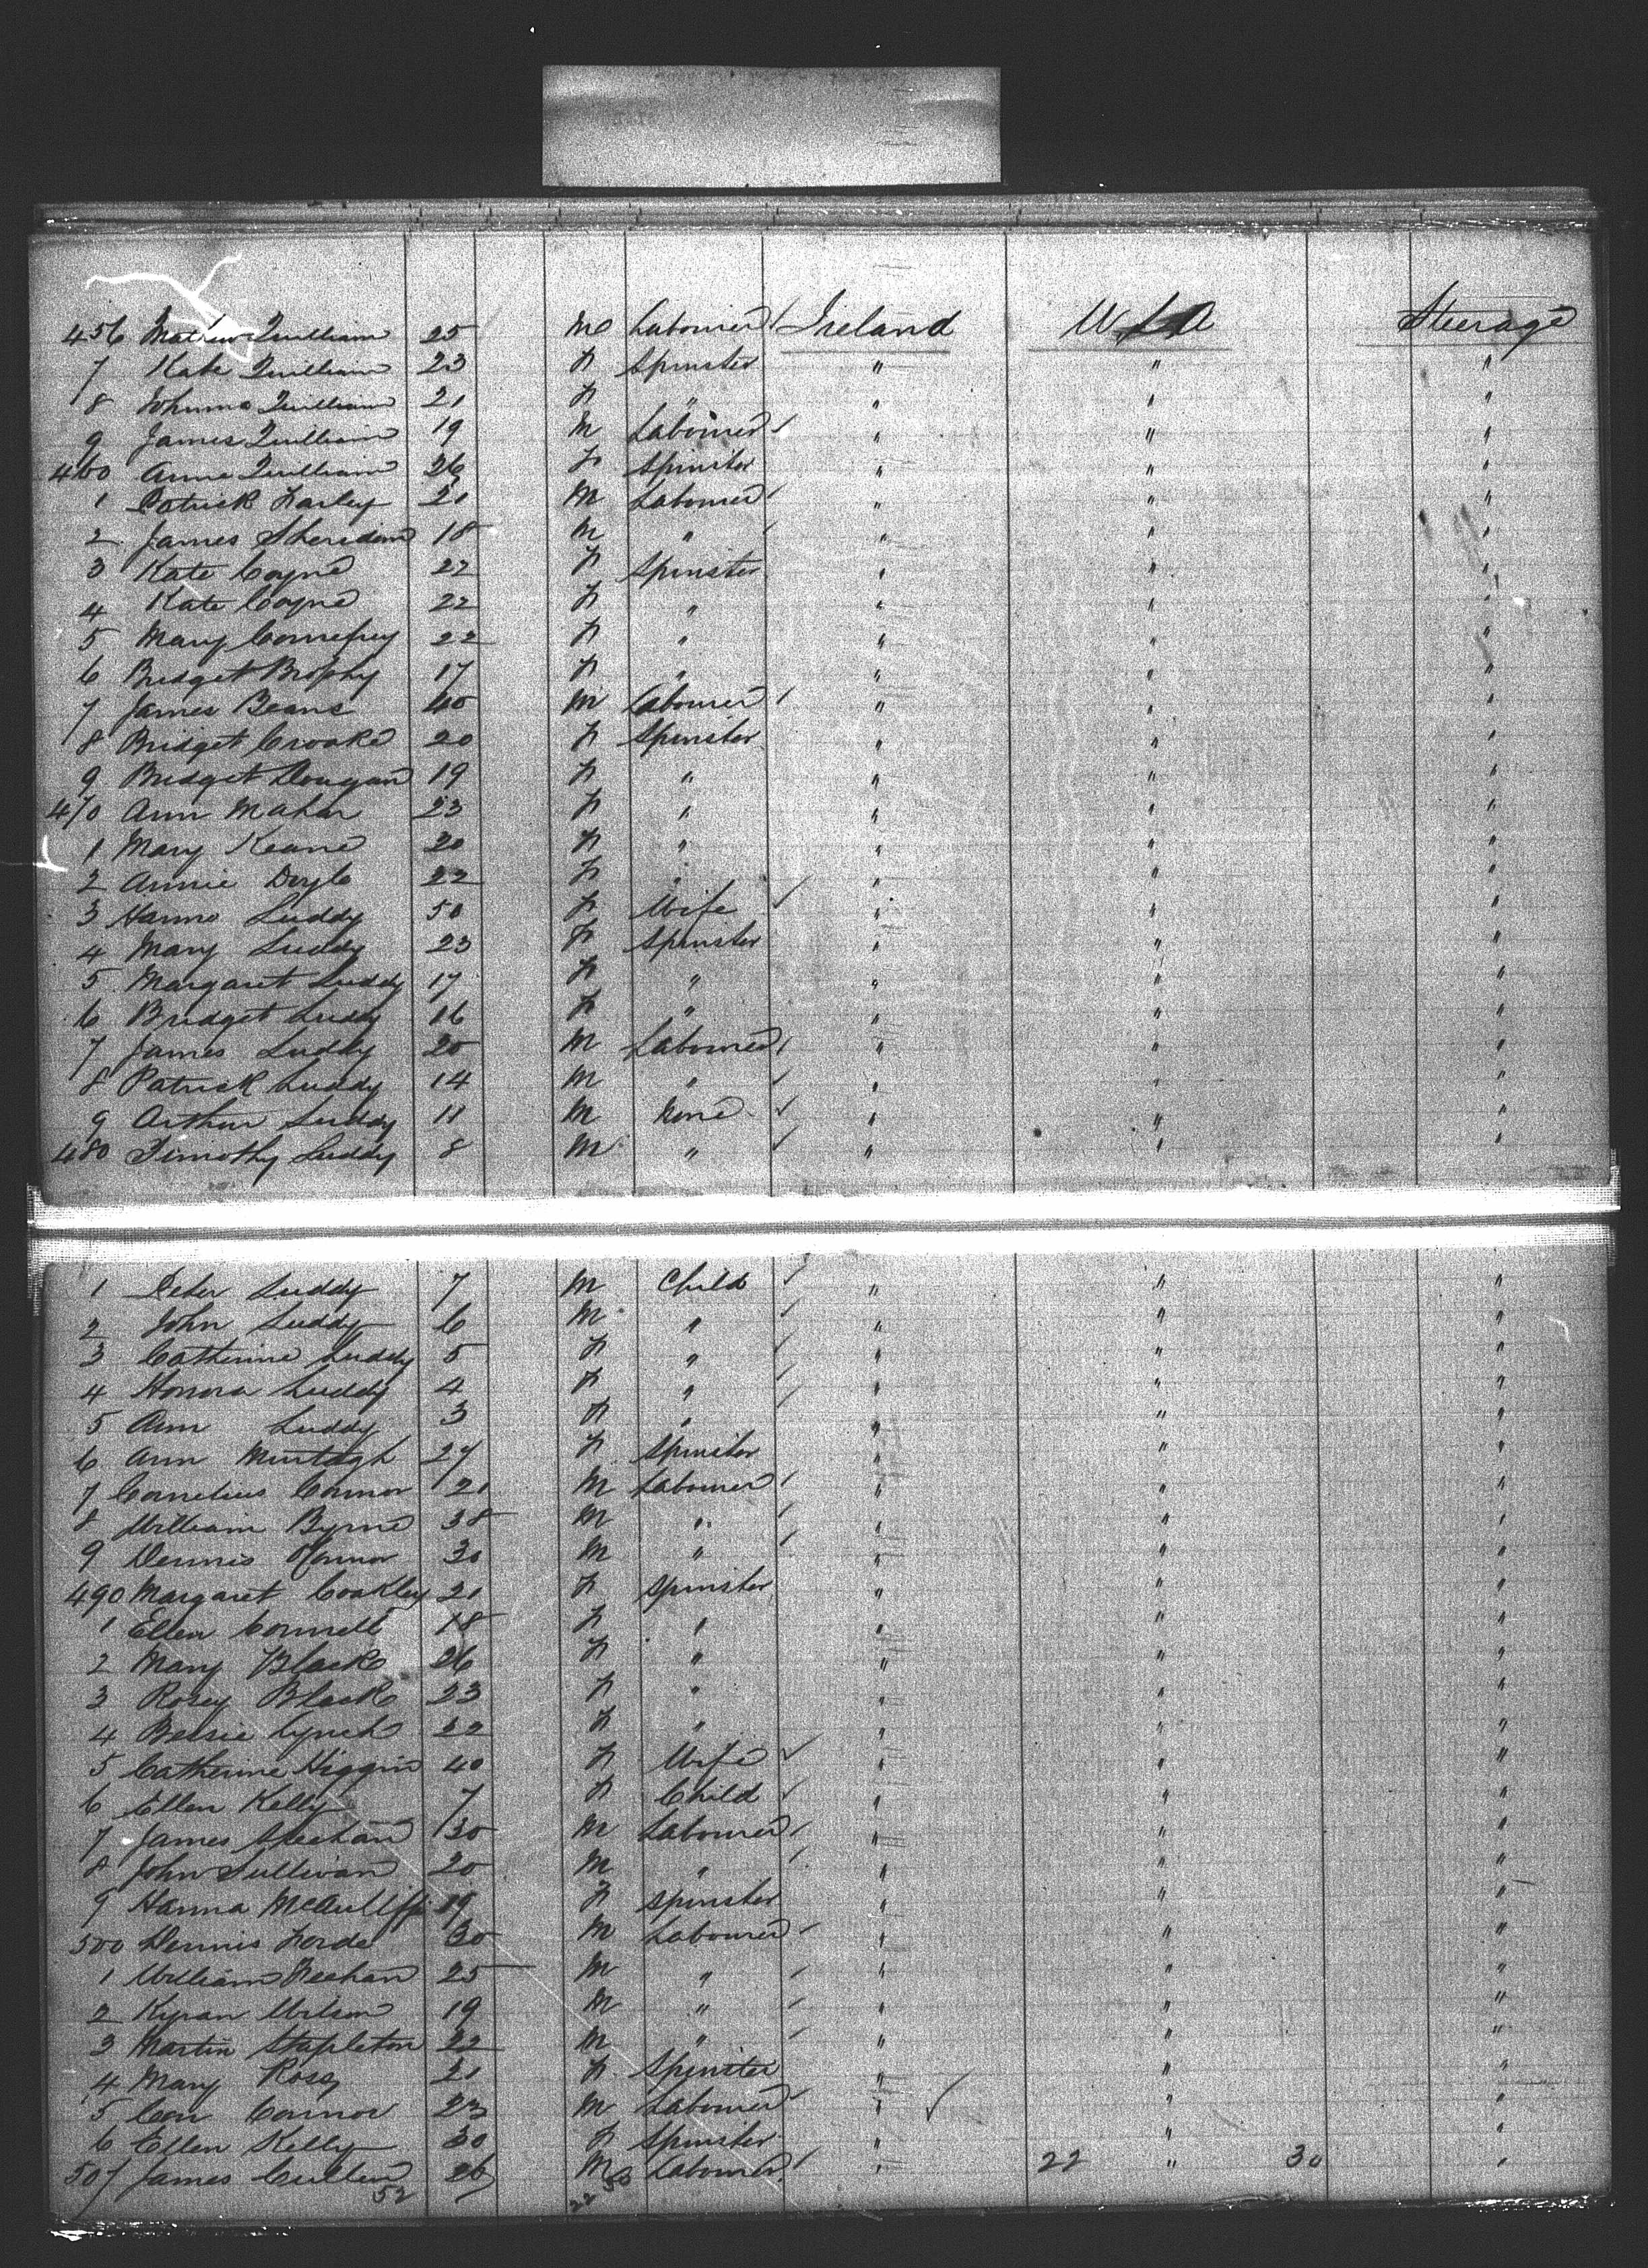 456 Mathew Quilliam 25 M Labourer Ireland U S A Steerage
7 Kate Quilliam 23 F Spinster " " "
8 Johnna Quilliam 21 F " " " "
9 James Quilliam 19 M Labourer " " "
460 Anne Quilliam 26 F Spinster " " "
1 Patrick Farley 21 M Labourer " " "
2 James Sheridan 18 M " " " "
3 Kate Coyne 22 F Spinster " " "
4 Kate Coyne 22 F " " " "
5 Mary Comefrey 22 F " " " "
6 Bridget Brophy 17 F " " " "
7 James Beans 40 M Labourer " " "
8 Bridget Crooke 20 F Spinster " " "
9 Bridget Dougan 19 F " " " "
470 Ann Maher 23 F " " " "
1 Mary Keane 20 F " " " "
2 Annie Doyle 22 F " " " "
3 Hanno Luddy 50 F Wife " " "
4 Mary Luddy 23 F Spinster " " "
5 Margaret Luddy 17 F " " " "
6 Bridget Luddy 16 F " " " "
7 James Luddy 20 M Labourer " " "
8 Patrick Luddy 14 M " " " "
9 Arthur Luddy 11 M None " " "
480 Timothy Luddy 8 M " " " "
1 Peter Luddy 7 M Child " " "
2 John Luddy 6 M " " " "
3 Catherine Luddy 5 F " " " "
4 Honora Luddy 4 F " " " "
5 Ann Luddy 3 F " " " "
6 Ann Murtagh 27 F Spinster " " "
7 Cornelius Connor 21 M Labourer " " "
8 William Byrne 38 M " " " "
9 Dennis OConnor 30 M " " " "
490 Margaret Coakley 21 F Spinster " " "
1 Ellen Connell 18 F " " " "
2 Mary Black 26 F " " " "
3 Rosey Black 23 F " " " "
4 Bessie Lynch 22 F " " " "
5 Catherine Higgins 40 F Wife " " "
6 Ellen Kelly 7 F Child " " "
7 James Sheehan 30 M Labourer " " "
8 John Sullivan 20 M " " " "
9 Hanna McAuliffe 19 F Spinster " " "
500 Dennis Forde 30 M Labourer " " "
1 William Meehan 25 M " " " "
2 Kyran Wilson 19 M " " " "
3 Martin Stapleton 22 M " " " "
4 Mary Ross 21 F Spinster " " "
5 Con Connor 23 M Labourer " " "
6 Ellen Kelly 30 F Spinster " " "
507 James Cullen 26 M Labourer " 22 " 30 "
52 22 30